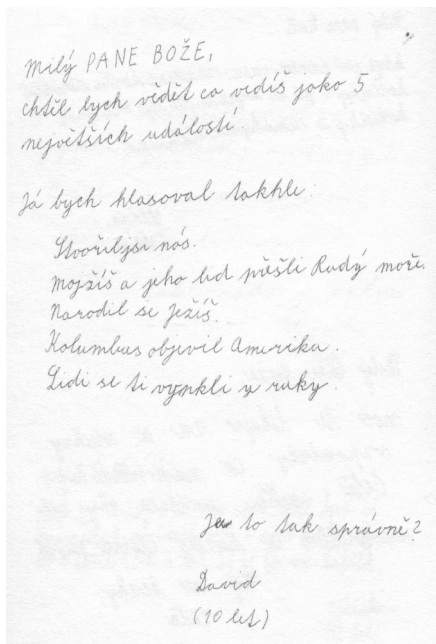 Milý PANE BOŽE,
chtěl bych vědět co vidíš jako 5
největších událostí.
Já bych hlasoval takhle:
Stvořiljsi nás.
Mojžíš a jeho lid přešli Rudý moře.
Narodil se Ježíš.
Kolumbus objevil Ameriku.
Lidi se ti vymkli z ruky.
Je to tak správně?
David
(10 let)